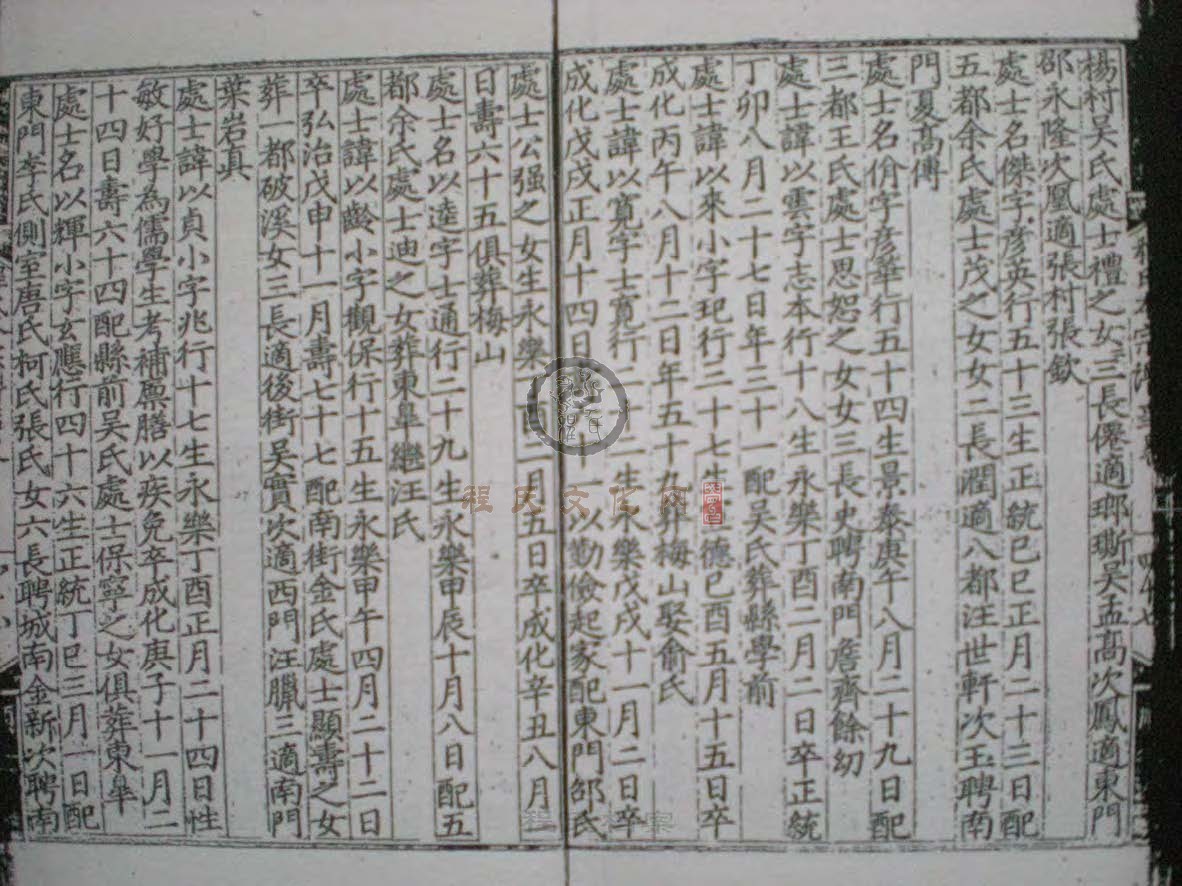 楊村吳氏處士禮之女三長僊適瑯瑘吳孟高次鳳適東門
邵永隆次凰適張村張欽
處士名傑字彥英行五十三生正統己巳正月二十三日配
五都余氏處士茂之女女二長潤適八都汪世軒次玉聘南
門夏高傅
處士名份字彥華行五十四生景泰庚午八月二十九日配
三都王氏處士思恕之女女三長史聘南門詹齊餘幼
處士諱以雲字志本行十八生永樂丁酉二月二日卒正統
丁卯八月二十七日年三十一配吳氏葬縣學前
處士諱以來小字玘行三十七生德己酉五月十五日卒
成化丙午八月十二日年五十九葬梅山娶俞氏
處士諱以寬字士寬行二十二生永樂戊戌十一月二日卒
成化戊戌正月十四日十一以勤儉起家配東門邵氏
處士公强之女生永樂酉二月五日卒成化辛丑八月二
日壽六十五俱葬梅山
處士名以逵字士通行二十九生永樂甲辰十月八日配五
都余氏處士迪之女葬東皐繼汪氏
處士諱以齡小字觀保行十五生永樂甲午四月二十二日
卒弘治戊申十一月壽七十七配南街金氏處士顯壽之女
葬一都破溪女三長適後街吳實次適西門汪臘三適南門
葉岩真
處士諱以貞小字兆行十七生永樂丁酉正月二十四日性
敏好學為儒學生考補廪膳以疾免卒成化庚子十一月二
十四日壽六十四配縣前吳氏處士保寧之女俱葬東皐
處士名以輝小字玄應行四十六生正統丁巳三月一日配
東門李氏側室唐氏柯氏張氏女六長聘城南金新次聘南
程氏文化网